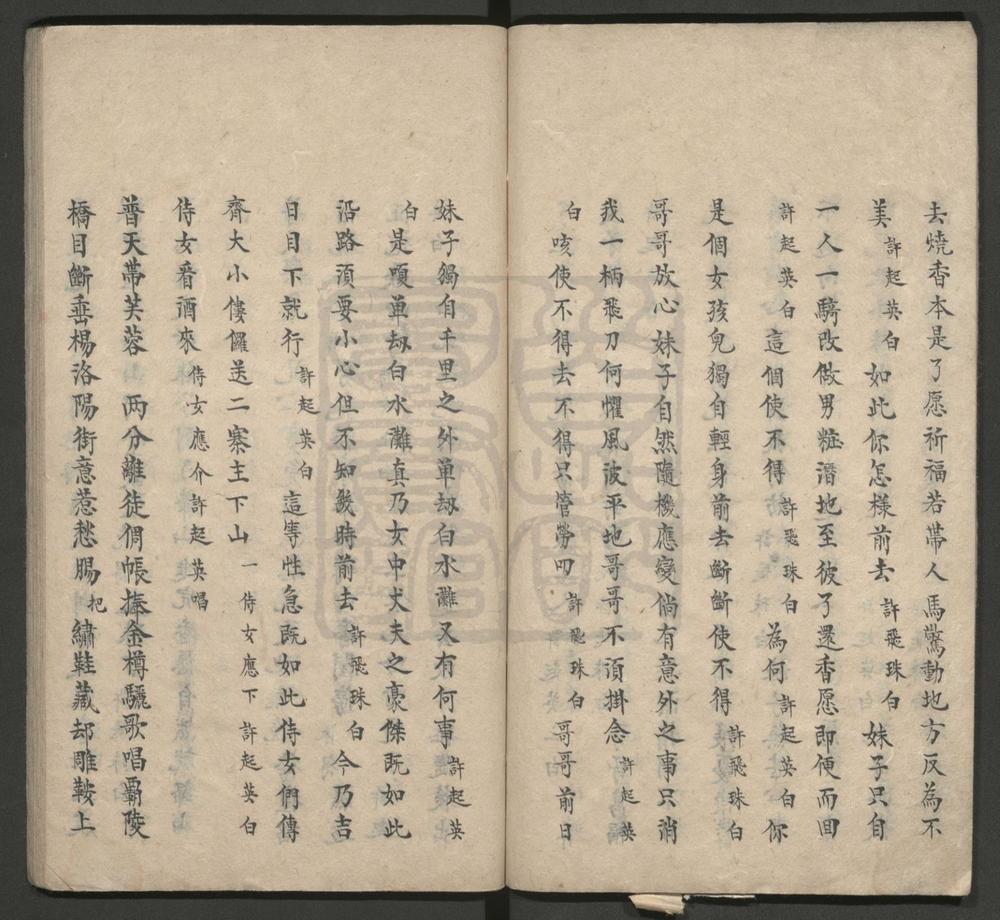 去燒香本是了愿祈福若帶人馬驚動地方反為不
美許起英白如此你怎樣前去許飛珠白妹子只自
一人一騎改做男粧潛地至彼了還香愿即便而回
許起英白這個使不得許飛珠白為何許起英白你
是個女孩兒獨自輕身前去斷斷使不得許飛珠白
哥哥放心妹子自然隨機應變倘有意外之事只消
我一柄飛刀何懼風波平地哥哥不須掛念許起英
白咳使不得去不得只管勞叨許飛珠白哥哥前日
妹子獨自千里之外单刼白水灘又有何事許起英
白是嗄单刼白水灘真乃女中丈夫之豪傑既如此
沿路須要小心但不知幾時前去許飛珠白今乃吉
日目下就行許起英白這等性急既如此侍女們傳
齊大小僂儸送二寨主下山一侍女應下許起英白
侍女看酒來侍女應介許起英唱
普天帶芙蓉两分離徒倜帳捧金樽驪歌唱霸陵
橋目斷垂楊洛陽街意惹愁腸把繡鞋藏却雕鞍上